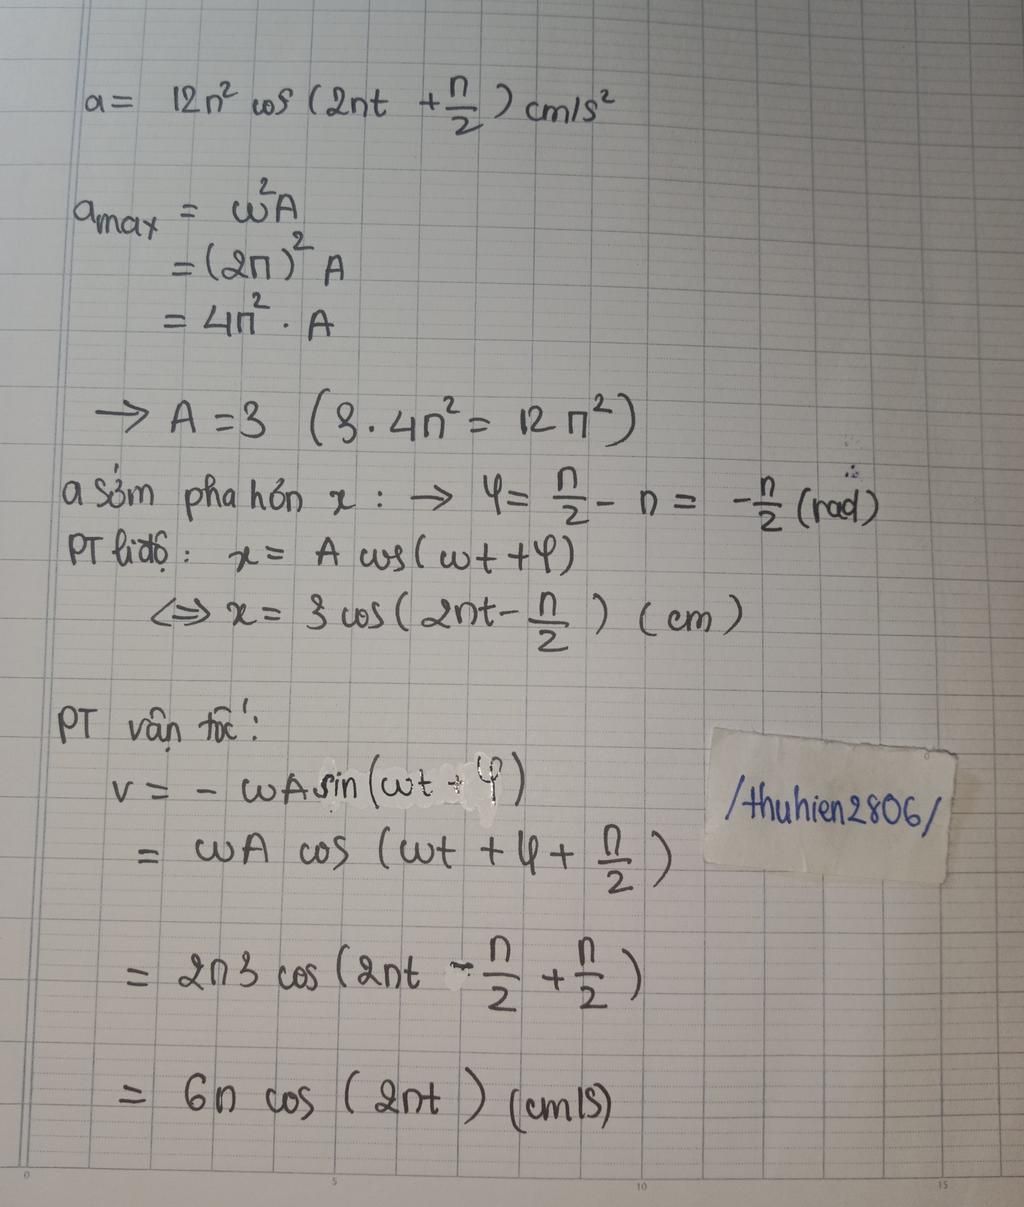 a = 12π² cos (2πt + π/2) cm/s²
amax = ω²A
= (2π)² A
= 4π² . A
→ A = 3 (3 . 4π² = 12π²)
a sớm pha hơn x : → φ = π/2 - π = -π/2 (rad)
PT li độ : x = A cos(ωt + φ)
<=> x = 3 cos(2πt - π/2) (cm)
PT vận tốc :
v = - ωA sin(ωt + φ)
= ωA cos (ωt + φ + π/2)
/thuhien2806/
= 2π3 cos (2πt - π/2 + π/2)
= 6π cos (2πt) (cm/s)
0 5 10 15